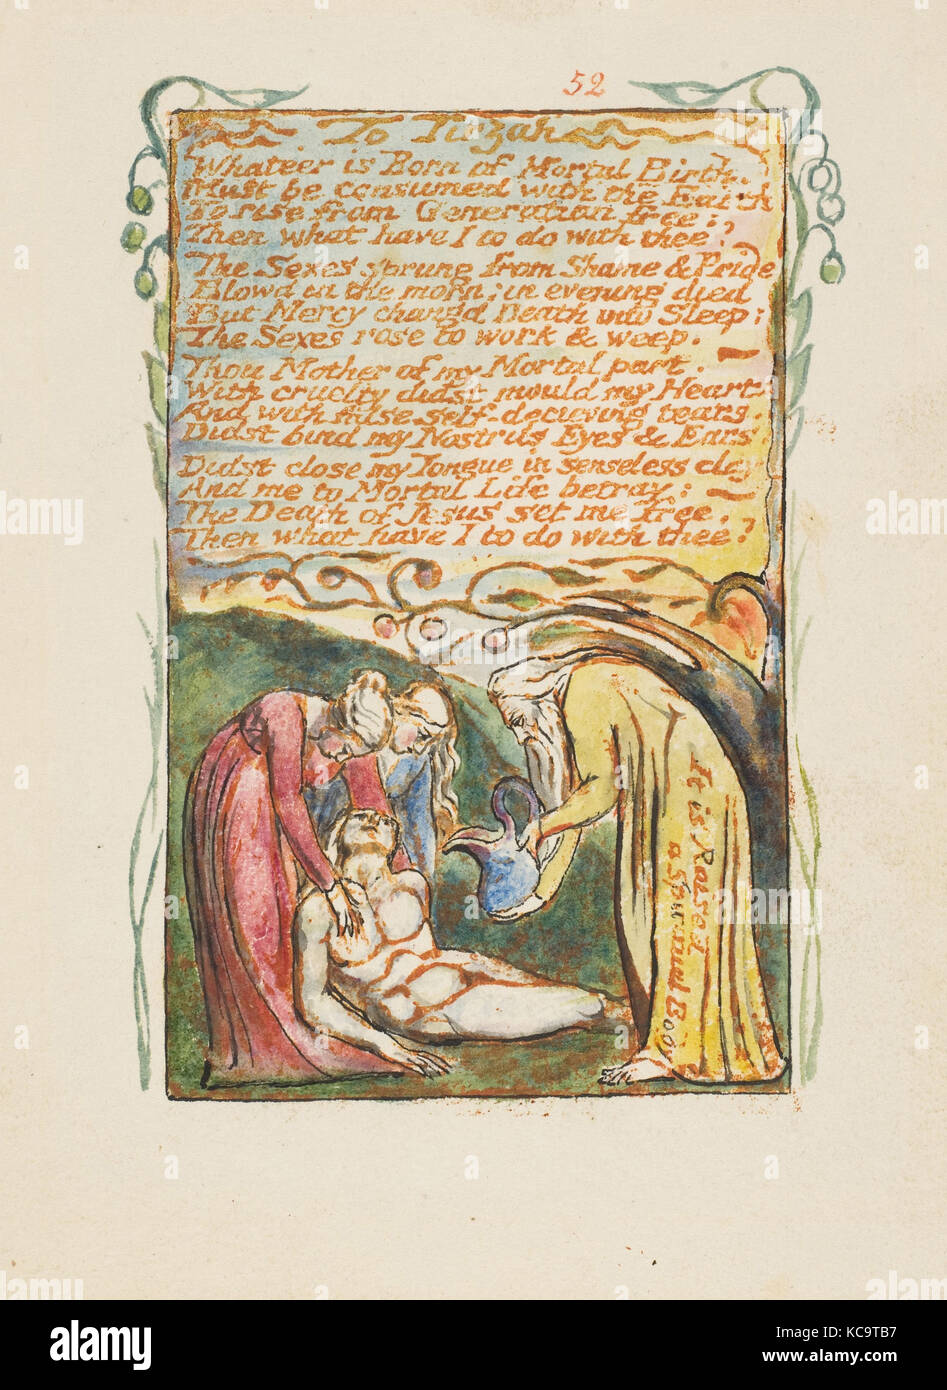 52
To Tirzah
Whateer is Born of Mortal Birth.
Must be consumed with the Earth
To rise from Generation free:
Then what have I to do with thee?
The Sexes sprung from Shame & Pride
Blowd in the morn; in evening died
But Mercy changd Death into Sleep;
The Sexes rose to work & weep.
Thou Mother of my Mortal part.
With cruelty didst mould my Heart
And with false self-decieving tears.
Didst bind my Nostrils Eyes & Ears
Didst close my Tongue in senseless clay
And me to Mortal Life betray:
The Death of Jesus set me free.
Then what have I to do with thee?
It is Raised
a Spiritual Body
alamy
a
a
alamy
a
alamy
a
a
alamy
alamy
Image ID: KC9TB7
www.alamy.com